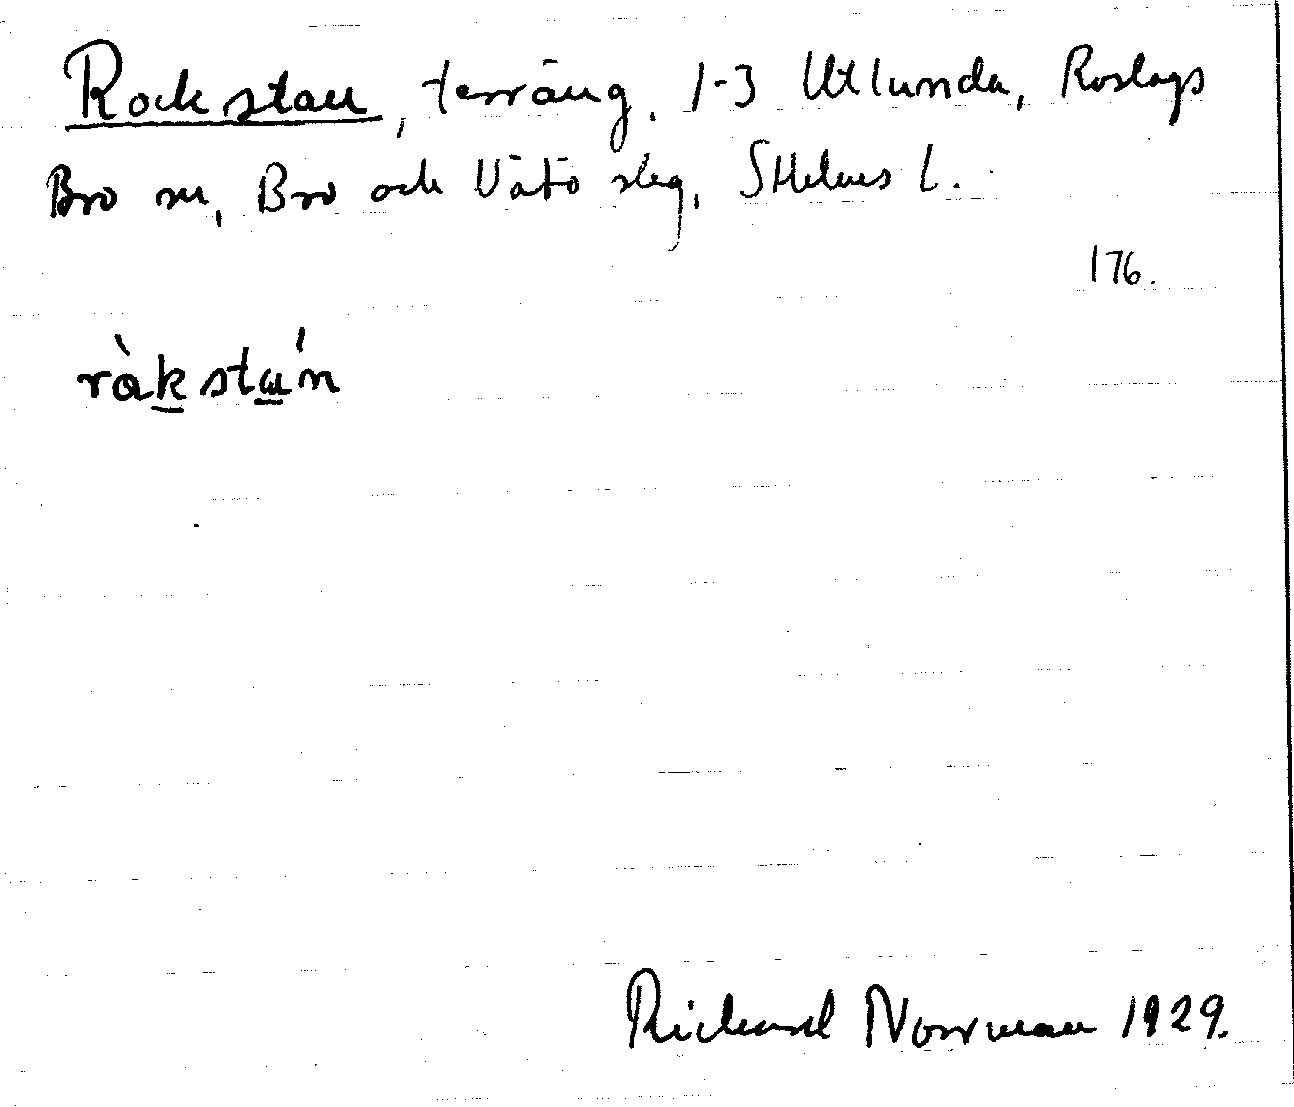 Rockstan, terräng, 1-3 Utlunda, Roslags
Bro sn, Bro och Vätö skg, Sthlms l.
176.
ràkstan
Richard Norrman 1929.